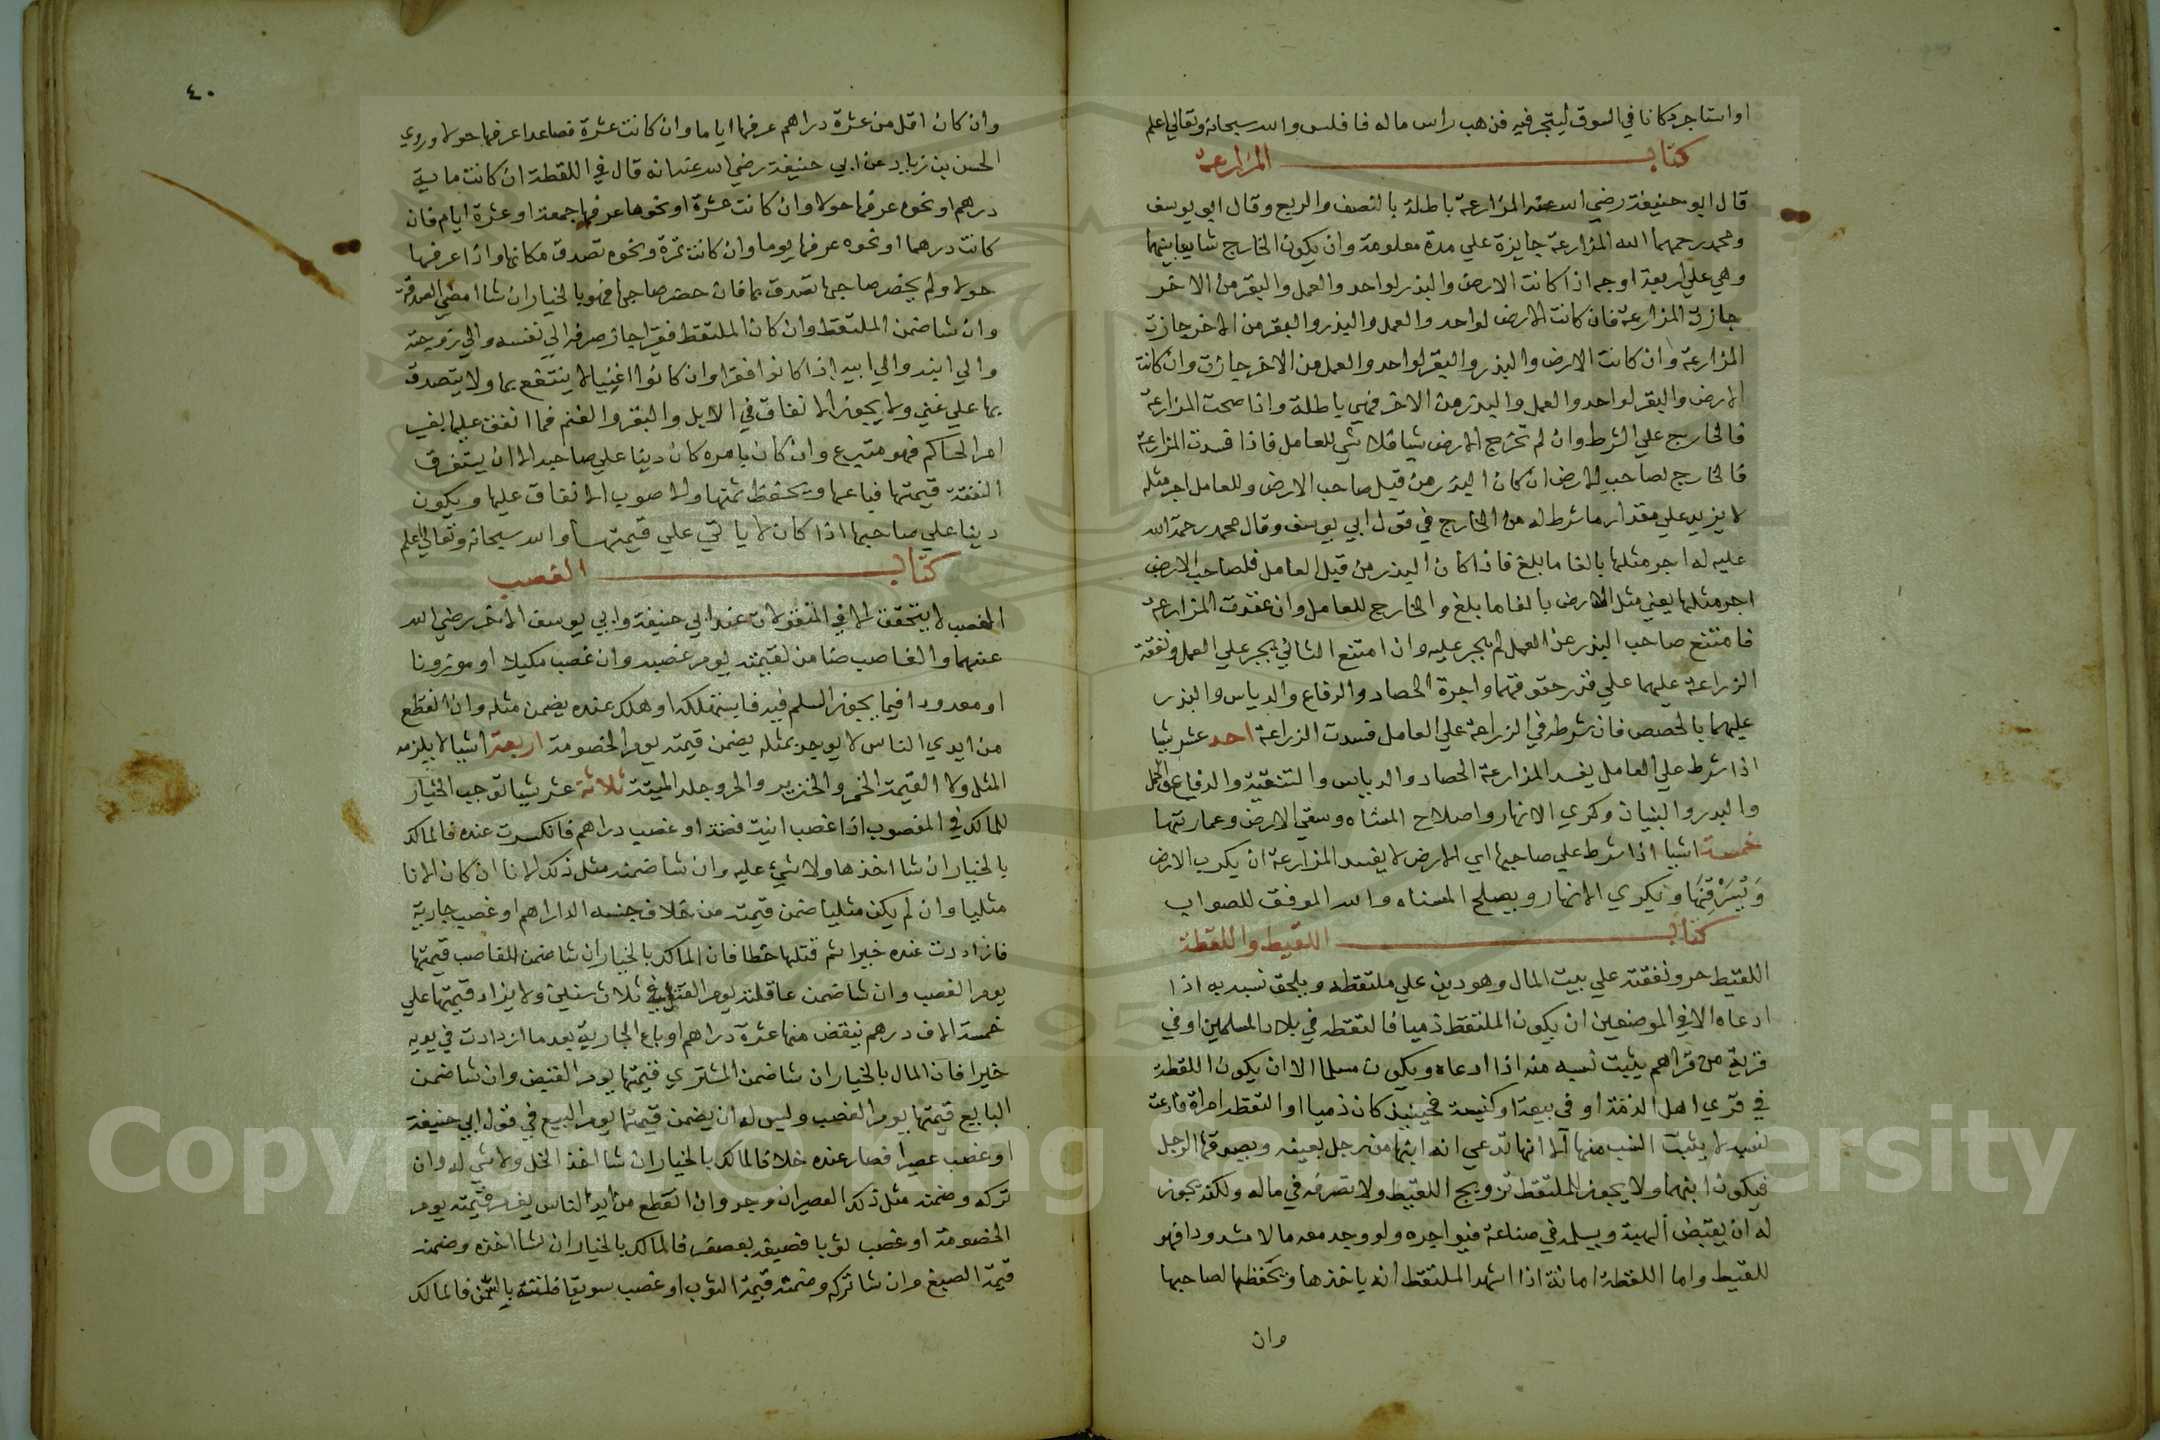 او استاجر دكانا في السوق ليتجر فيه فذهب راس ماله فافلس والله سبحانه وتعالي اعلم
كتاب المزارعة
قال ابو حنيفة رضي الله عنه المزارعة باطلة بالنصف والربع وقال ابو يوسف
ومحمد رحمهما الله المزارعة جايزة علي مدة معلومة وان يكون الخارج شايعا بينهما
وهي علي اربعة اوجه اذا كانت الارض والبذر لواحد والعمل والبقر من الاخر
جازت المزارعة فان كانت الارض لواحد والعمل والبذر والبقر من الاخر جازت
المزارعة وان كانت الارض والبذر والبقر لواحد والعمل من الاخر جازت وان كانت
الارض والبقر لواحد والعمل والبذر من الاخر فهي باطلة واذا صحت المزارعة
فالخارج علي الشرط وان لم تخرج الارض شيا فلا شي للعامل فاذا فسدت المزارعة
فالخارج لصاحب الارض ان كان البذر من قبل صاحب الارض وللعامل اجر مثله
لا يزيد علي مقدار ما شرط له من الخارج في قول ابي يوسف وقال محمد رحمة الله
عليه له اجر مثلها بالغا ما بلغ فاذا كان البذر من قبل العامل فلصاحب الارض
اجر مثلها يعني مثل الارض بالغا ما بلغ والخارج للعامل وان عقدت المزارعة
فامتنع صاحب البذر عن العمل لم يجبر عليه وان امتنع الثاني يجبر علي العمل ونفقة
الزراعة عليهما علي قدر حقوقهما واجرة الحصاد والرفاع والدياس والبذر
عليهما بالحصص فان شرطه في الزراعة علي العامل فسدت الزراعة احد عشر شيا
اذا شرط علي العامل يفسد المزارعة الحصاد والدياس والتنقية والدفاع والحمل
والبدر والبنيان وكري الانهار واصلاح المسناه وسقي الارض وعمارتها
خمسة اشيا اذا شرط علي صاحبها اي الارض لا يفسد المزارعة ان يكرب الارض
وَيُسَرْقِنَهَا ويكري الانهار ويصلح المسناه والله الموفق للصواب
كتاب اللقيط واللقطة
اللقيط حر ونفقته علي بيت المال وهو دين علي ملتقطه ويلحق نسبه به اذا
ادعاه الا في الموضعين ان يكون الملتقط ذميا فالتقطه في بلاد المسلمين او في
قرية من قراهم يثبت نسبه منه اذا ادعاه ويكون مسلما الا ان يكون اللقطة
في قري اهل الذمة او في بيعة او كنيسة فحينيذ كان ذميا او التقطه امراة فادعت
نسبه لا يثبت النسب منها الا انها تدعي انه ابنها من رجل بعينه ويصدقها الرجل
فيكون ابنهما ولا يجوز للملتقط تزويج اللقيط ولا تصرفه في ماله ولكنه يجوز
له ان يقبض الهبة ويسلمه في صناعة فيواجره ولو وجد معه مالا مشدودا فهو
للقيط واما اللقطة امانة اذا اشهد الملتقط انه ياخذها ويحفظها لصاحبها
وان
٤٠
وان كان اقل من عشرة دراهم عرفها اياما وان كانت عشرة فصاعدا عرفها حولا وروي
الحسن بن زياد عن ابي حنيفة رضي الله عنه انه قال في اللقطة ان كانت ماية
درهم او نحوه عرفها حولا وان كانت عشرة او نحوها عرفها جمعة او عشرة ايام فان
كانت درهما او نحوه عرفها يوما وان كانت تمرة ونحوه تصدق مكانها واذا عرفها
حولا ولم يحضر صاحبها تصدق بها فان حضر صاحبها فهو بالخيار ان شا امضي الصدقة
وان شا ضمن الملتقط وان كان الملتقط فقيرا جاز صرفه الي نفسه والي زوجته
والي ابنه والي ابيه اذا كانوا فقرا وان كانوا اغنيا لا ينتفع بها ولا يتصدق
بها علي غني ولا يجوز الانفاق في الابل والبقر والغنم فما انفق عليها بغير
امر الحاكم فهو متبرع وان كان بامره كان دينا علي صاحبه الا ان يستغرق
النفقة قيمتها فباعها ويحفظ ثمنها والاصوب الانفاق عليها ويكون
دينا علي صاحبها اذا كان لا ياتي علي قيمتها والله سبحانه وتعالي اعلم
كتاب الغصب
الغصب لا يتحقق الا في المنقولات عند ابي حنيفة وابي يوسف الاخر رضي الله
عنهما والغاصب ضامن لقيمته يوم غصبه وان غصب مكيلا او موزونا
او معدودا فيما يجوز السلم فيه فاستهلكه او هلك عنده يضمن مثله وان انقطع
من ايدي الناس لا يوجد بمثله يضمن قيمته يوم الخصومة اربعة اشيا لا يلزمه
المثل ولا القيمة الخمر والخنزير والحر وجلد الميتة ثلاثة عشر شيا توجب الخيار
للمالك في المغصوب اذا غصب انية فضة او غصب دراهم فانكسرت عنده فالمالك
بالخيار ان شا اخذها ولا شيء عليه وان شا ضمنه مثل ذلك الانا ان كان الانا
مثليا وان لم يكن مثليا ضمن قيمته من خلاف جنسه الدراهم او غصب جارية
فازدادت عنده خيرا ثم قتلها خطا فان المالك بالخيار ان شا ضمن الغاصب قيمتها
يوم الغصب وان شا ضمن عاقلته يوم القتل في ثلاث سنين ولا يزاد قيمتها علي
خمسة الاف درهم ينقض منها عشرة دراهم او باع الجارية بعد ما ازدادت في يديه
خيرا فان المال بالخيار ان شا ضمن المشتري قيمتها يوم القبض وان شا ضمن
البايع قيمتها يوم الغصب وليس له ان يضمن قيمتها يوم البيع في قول ابي حنيفة
او غصب عصيرا فصار عنده خلا فالمالك بالخيار ان شا اخذ الخل ولا شي له وان
تركه وضمنه مثل ذلك العصير ان وجد وان انقطع من ايد الناس يغرم قيمته يوم
الخصومة او غصب ثوبا فصبغه بعصفر فالمالك بالخيار ان شا اخذه وضمنه
قيمة الصبغ وان شا تركه وضمنه قيمة الثوب او غصب سويقا فلته بالسمن فالمالك
Copyright © King Saud University